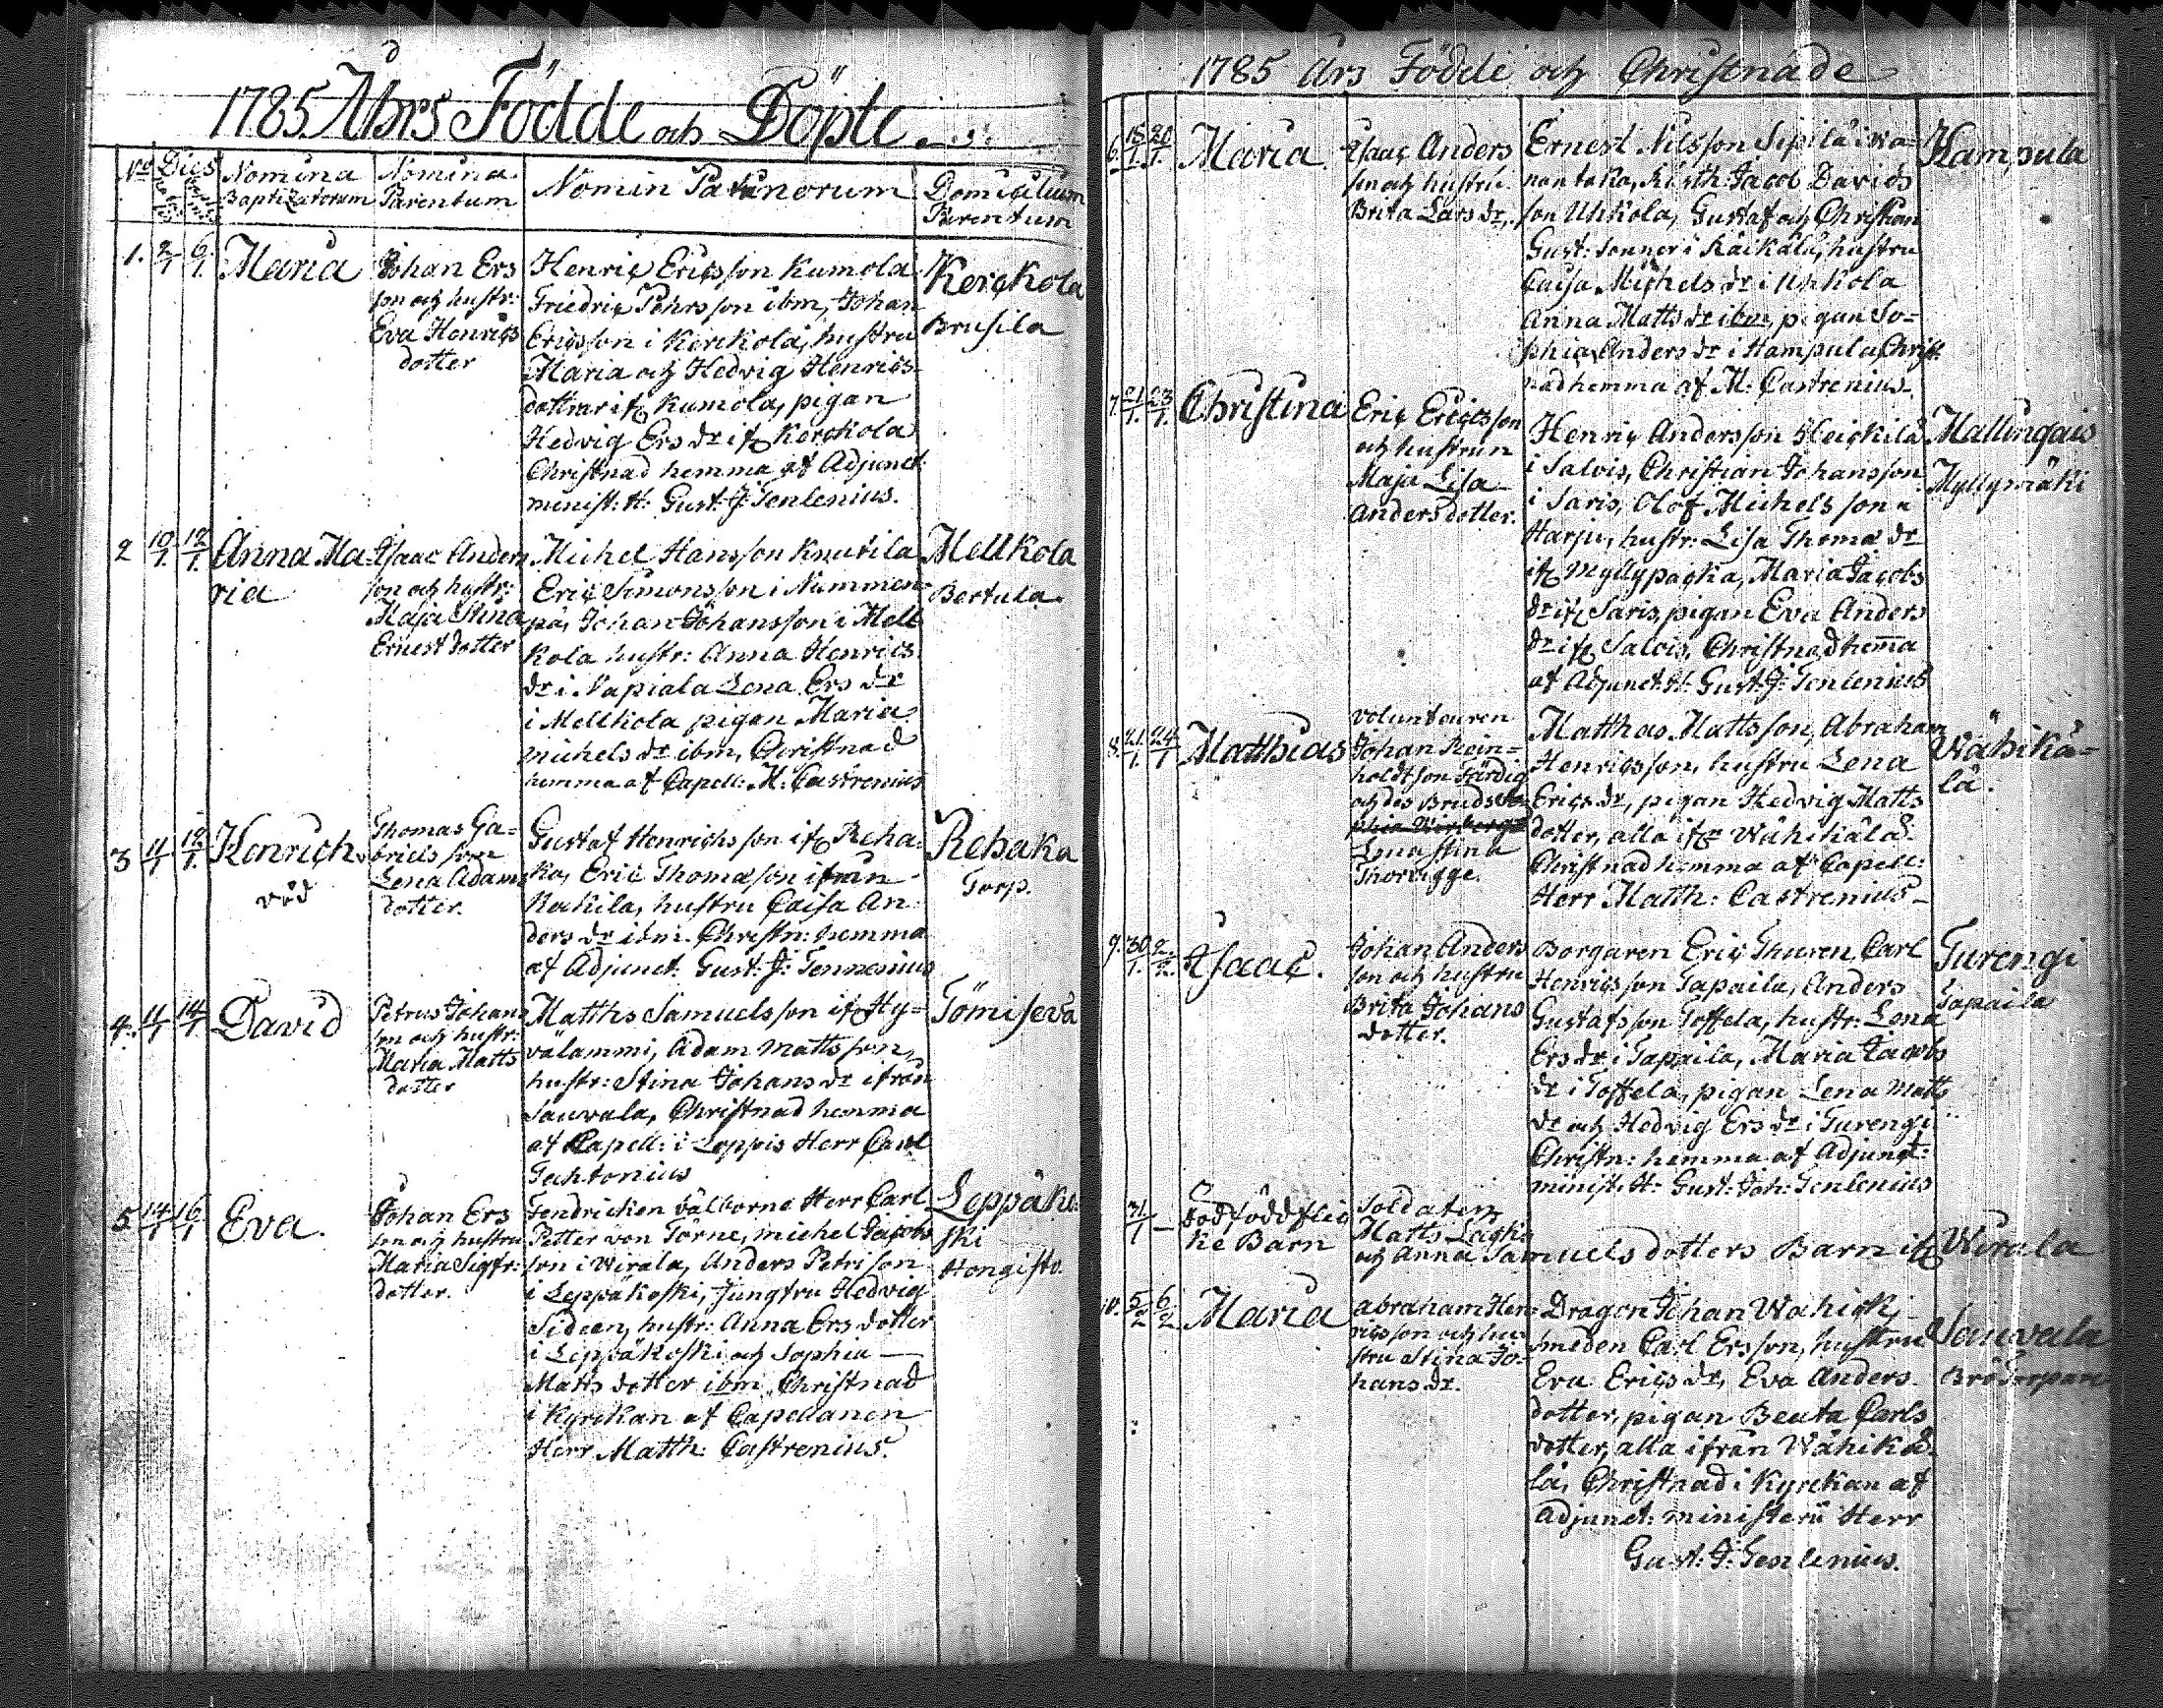 1785 Åhrs Födde och Döpte
No Dies Nomina Nomina Nomin Patrinorum Domicilium
Baptizatorum Parentum Parentum
1. 2/1 6/1 Maria
Johan Ers
son och hustr:
Eva Henrics
dotter
Henric Ericsson Kumola
Friedric Pehrsson ibm, Johan
Ericsson i Kerckola, hustru
Maria och Hedvig Henrics-
dottrar ifr Kumola, pigan
Hedvig Ers dr ifr Kerckola
Christnad hemma af Adjunct:
minist: H: Gust: J: Tenlenius.
Kerckola
Brusila
2 10/1 12/1 Anna Ma-
ria
Isaac Anders
son och hustr:
Maja Stina
Ernest dotter
Michel Hansson Knutila
Eric Simonsson i Nummen-
pä, Johan Johansson i Mell
kola hustr: Anna Henrics
dr i Napiala Lena Ers dr
i Mellkola pigan Maria
michels dr ibm, Christnad
hemma af Capell: M: Castrenius
Mellkola
Bertula
3 11/1 12/1 Henrich
död
Thomas Ga-
briels son
Lena Adams
dotter.
Gustaf Henrichsson ifr Reha-
ka, Eric Thomasson ifrån
Rackila, hustru Caisa An-
ders dr ibm. Christn: hemma
af Adjunct: Gust: J: Tennenius
Rehaka
Torp.
4. 11/1 14/1 David
Petrus Johans
son och hustr:
Maria Matts
dotter
Matths Samuelsson ifr Hy-
välammi, Adam Mattsson,
hustr: Stina Johans dr ifrån
Sauvala, Christnad hemma
af Capell: i Loppis Herr Carl
Tachtonius
Tömisevä
5 14/1 16/1 Eva.
Johan Ers
son och hustru
Maria Sigfr:
dotter.
Fendricken välborne Herr Carl
Petter von Törne, michel Jacobs
son i Wirala, Anders Petrisson
i Leppäkoski, Jungfru Hedvig
Sideen, hustr: Anna Ers dotter
i Leppäkoski och Sophia
Matts dotter ibm Christnad
i Kyrckan af Capellanen
Herr Matth: Castrenius.
Leppäko-
ski
Hongisto.
1785 Års Födde och Christnade
6. 15/1 20/1 Maria
Isaac Anders
son och hustru
Brita Lars dr,
Ernest Nilsson Sipilä i wa-
non taka, Jacob Davids
son Uhkola, Gustaf och Christian
Gust: sonner i Räikälä, hustru
Caisa Michels dr i Uhkola
Anna Matts dr ibm, pigan So-
phia Anders dr i Hampula, Christ
nad hemma af M: Castrenius.
Hampula
7. 21/1 23/1 Christina
Eric Ericsson
och hustrun
Maja Lisa
Anders dotter.
Henric Andersson Heickilä
i Salois, Christian Johansson
i Saris, Olof Michelsson
Harju, hustr: Lisa Thomæ dr
ifr Myllypacka, Maria Jacobs
dr ifr Saris, pigan Eva Anders
dr ifr Salois, Christnad hemma
af Adjunct: H: Gust: J: Tenlenius
Mallingais
Myllymäki
8. 21/1 24/1 Matthias
Volunteuren
Johan Rein-
holdtson Färdig
och des Bruds
Lena Stina
Thorvigge.
Matthas Mattsson, Abraham
Henricsson, hustru Lena
Erics dr, pigan Hedvig Matts
dotter, alla ifr Wähikälä
Christnad hemma af Capell:
Herr Matth: Castrenius
Wähikä-
lä.
9. 30/1 2/2 Isaac.
Johan Anders
son och hustru
Brita Johans
dotter.
Borgaren Eric Thuren, Carl
Henricsson Tapaila, Anders
Gustafsson Toffela, hustr: Lena
Ers dr i Tapaila, Maria Jacobs
dr i Toffela, pigan Lena Matts
dr och Hedvig Ers dr i Turengi
Christn: hemma af Adjunct:
minist: H: Gust: Joh: Tenlenius
Turengi
Tapaila
31/1 — Dödföddt flic
ke Barn
Soldaten
Matts
och Anna Samuels dotters Barn ifr Wirala
10. 5/2 6/2 Maria
Abraham Hen-
ricsson och hu-
stru Stina Jo-
hans dr.
Dragon Johan Wahick,
smeden Carl Ersson, hustru
Eva Erics dr, Eva Anders
dotter, pigan Beata Carls
dotter, alla ifrån Wähikä-
lä, Christnad i Kyrckan af
Adjunct: ministerii Herr
Gust: J: Tenlenius.
Sauvala